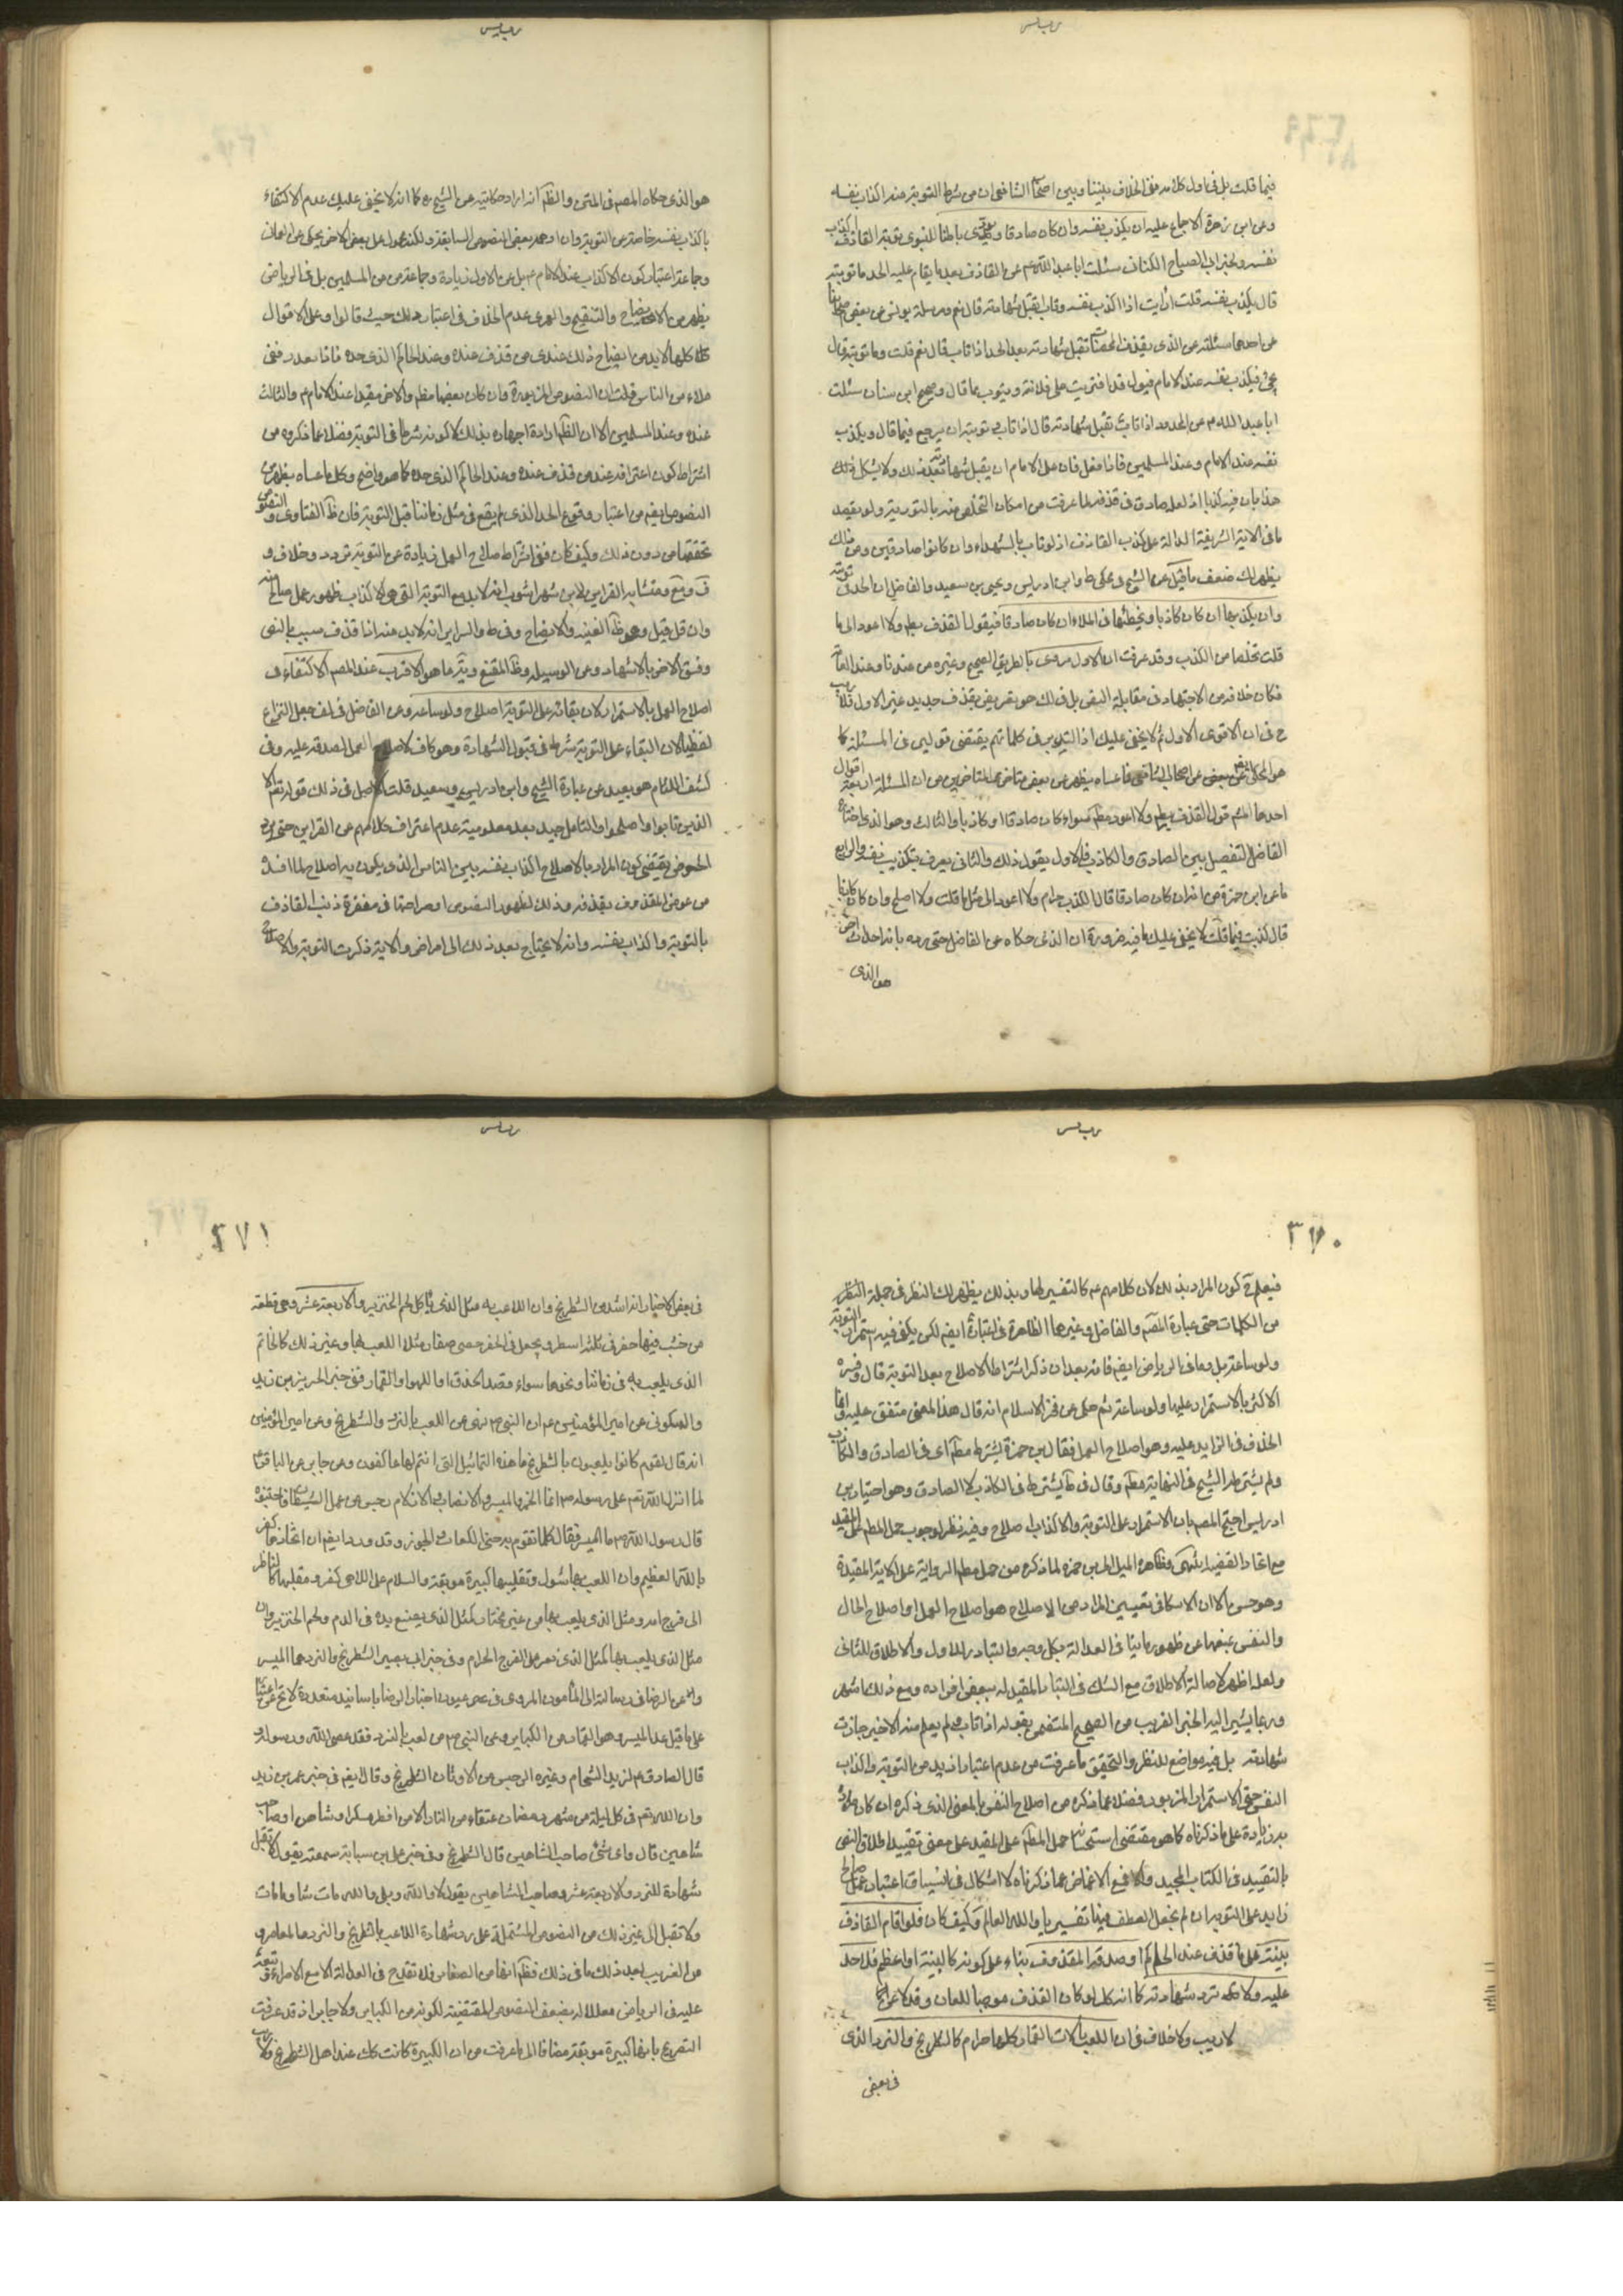 فيما قلت بل في اول كلامه نفى الخلاف بيننا وبين اصحاب الشافعي ان من شرط التوبة هذا اكذاب نفسه
وعن ابن زهرة الاجماع عليه ان يكذب نفسه وان كان صادقا
نفسه ولخبر ابي الصباح الكناني سئلت ابا عبد الله ع عن القاذف بعد ما يقام عليه الحد ما توبته
قال يكذب نفسه قلت ارايت اذا اكذب نفسه وتاب ايقبل شهادته قال نعم ومرسلة يونس عن بعض
عن احدهما سئلته عن الذي يقذف المحصنات تقبل شهادته بعد الحد اذا تاب قال نعم قلت وما توبته قال
يجئ فيكذب نفسه عند الامام فيقول قد افتريت على فلانة ويتوب مما قال وصحيح ابن سنان سئلت
ابا عبد الله ع عن المحدود اذا تاب تقبل شهادته قال اذا تاب توبته ان يرجع فيما قال ويكذب
نفسه عند الامام وعند المسلمين فاذا فعل فان على الامام ان يقبل شهادته بعد ذلك ولا يشكل ذلك
هذا بان فيه كذبا اذ لعله صادق في قذفه لما عرفت من امكان التخلص منه بالتورية ولو بقصد
ما في الاية الشريفة الدالة على كذب القاذف اذ لو تاب بالشهداء وان كانوا صادقين ومن ذلك
يظهر لك ضعف ما قيل عن الشيخ في محكى ط وابن ادريس ويحيى بن سعيد والفاضل ان الحد في توبته
وان يكذبها ان كان كاذبا ويخطئها في الملاء ان كان صادقا فيقول القذف باطل ولا اعود الى ما
قلت تخلصا من الكذب وقد عرفت ان الاول مروي بالطريق الصحيح وغيره من عندنا وعند العامة
فكان خلافه من الاجتهاد في مقابلة النص بل في ذلك هو تعريض بقذف جديد غير الاول فلا ريب
ح في ان الاقوى الاول ثم لا يخفى عليك اذ التدبر في كلماتهم يقتضي قولين في المسئلة كما
هو المحكى عن بعض عن اصحاب الشافعي فما عساه يظهر من بعض متأخري المتأخرين من ان المسئلة اربعة اقوال
احدها المشهور الثاني قول القذف باطل ولا اعود مطلقا سواء كان صادقا او كاذبا والثالث وهو الذي اختاره
الفاضل التفصيل بين الصادق والكاذب فالاول يقول ذلك والثاني يعرف بتكذيب نفسه والرابع
ما عن ابن حمزة من انه ان كان صادقا قال الكذب حرام ولا اعود الى مثل ما قلت واصلح وان كان كاذبا
قال كذبت فيما قلت لا يخفى عليك ما فيه ضرورة ان الذي حكاه عن الفاضل
هو الذي
هو الذي حكاه المصنف في المتن والظاهر انه اراد حكايته عن الشيخ ره كما انه لا يخفى عليك عدم الاكتفاء
باكذاب نفسه خاصة عن التوبة وان اوهمه بعض النصوص السابقة
وجماعة اعتبار كون الاكذاب عند الامام ع بل عن الاول زيادة وجماعة من المسلمين بل في الرياض
يظهر من الايضاح والتنقيح والصيمري عدم الخلاف في اعتبار ذلك حيث قالوا وعلى الاقوال
كلها لابد من ايضاح ذلك عند من قذف عنده وعند الحاكم الذي حده فاذا تعذر ففي
ملاء من الناس قلت ان النصوص المزبورة وان كان بعضها مطلقا والاخر مقيدا عند الامام ع والثالث
عنده وعند المسلمين الا ان الظاهر ارادة اجهاره بذلك لا كونه شرطا في التوبة فضلا عما ذكروه من
اشتراط كون اعترافه عند من قذف عنده وعند الحاكم الذي حده كما هو واضح وكل ما عساه يظهر من
النصوص ايضا من اعتبار وقوع الحد الذي لم يقع في مثل زماننا قبل التوبة فان ظاهر الفتاوى والنصوص
تحققها من دون ذلك وكيف كان ففي اشتراط صلاح العمل زيادة عن التوبة تردد وخلاف و
في ومتشابه القرآن لابن شهر اشوب انه لابد مع التوبة التي هي الاكذاب ظهور عمل صالح منه
وان قل قيل وهو ظاهر الغنيه والايضاح وفي ط والسراير انه لابد منه اذا قذف سبب بالنص
وفسق الاخر بالاشهاد وعن الوسيله وظاهر المقنع ما هو الاقرب عند المصنف الاكتفاء في
اصلاح العمل بالاستمرار لان بقائه على التوبة اصلاح ولو ساعة وعن الفاضل في لف جعل النزاع
لفظيا لان البقاء على التوبة شرط في قبول الشهادة وهو كاف لاصلاح العمل لصدقه عليه وفي
كشف اللثام هو بعيد عن عبارة الشيخ وابن ادريس وسعيد قلت الاصل في ذلك قوله تعالى الا
الذين تابوا واصلحوا والتامل جيد بعد معلومية عدم اعتراف كلامهم عن القراين حتى
الخصوص يقتضي كون المراد بالاصلاح اكذاب نفسه بين الناس الذي يكون به اصلاح لما افسد
من عرض المقذوف بقذفه وذلك لظهور النصوص او صراحتها في مغفرة ذنب القاذف
بالتوبة واكذاب نفسه وانه لا يحتاج بعد ذلك الى امر اخر والاية ذكرت التوبة والاصلاح
٣٧٠
فيعلم ح كون المراد بذلك لان كلامهم ع كالتفسير لها وبذلك يظهر لك النظر في جملة
من الكلمات حتى عبارة المصنف والفاضل وغيرها الظاهرة في اعتباره ايضا لكن يكفي فيه استمرار التوبة
ولو ساعة بل وما في الرياض ايضا فانه بعد ان ذكر اشتراط الاصلاح بعد التوبة قال وفسره
الاكثر بالاستمرار عليها ولو ساعة ثم حكى عن فخر الاسلام انه قال هذا المعنى متفق عليه وانما
الخلاف في الزايد عليه وهو اصلاح العمل فقال بن حمزة يشترط مطلقا اى في الصادق والكاذب
ولم يشترطه الشيخ في النهاية مطلقا وقال في ط يشترط في الكاذب لا الصادق وهو اختيار بن
ادريس احتج المصنف بان الاستمرار على التوبة والاكذاب اصلاح وفيه نظر لوجوب حمل المطلق على المقيد
مع اتحاد القضيه انتهى وظاهره الميل الى بن حمزه لما ذكره من حمل مطلق الرواية على الاية المقيدة
وهو حسن الا ان الاشكال في تعيين المراد من الاصلاح هو اصلاح العمل او اصلاح الحال
والنفس بمنعها عن ظهور ما ينافي العدالة بكل وجه والتبادر للاول والاطلاق للثاني
ولعله اظهر لاصالة الاطلاق مع الشك في التبادر المقيد له ببعض افراده ومع ذلك اشهر
وربما يشير اليه الخبر القريب من الصحيح المتضمن لقوله اذا تاب ولم يعلم منه الا خير جازت
شهادته بل فيه مواضع للنظر والتحقيق ما عرفت من عدم اعتبار ازيد من التوبة واكذاب
النفس حتى الاستمرار المزبور فضلا عما ذكره من اصلاح النفس بالمعنى الذي ذكره ان كان مراده
به زيادة على ما ذكرناه كما هو مقتضى استحسانه حمل المطلق على المقيد على معنى تقييد اطلاق النص
بالتقييد في الكتاب المجيد والا فمع الاغماض عما ذكرناه لا اشكال في انسياق اعتبار عمل صالح
زايد على التوبة ان لم نجعل العطف فيها تفسيريا والله العالم وكيف كان فلو اقام القاذف
بينة على ما قذف عند الحاكم او صدقه المقذوف بناء على كونه كالبينة او اعظم فلا حد
عليه ولا ترد شهادته كما انه كك لو كان القذف موجبا للعان وقد لاعن
لا ريب ولا خلاف في ان اللعب بالات القمار كلها حرام كالشطرنج والنرد الذي
في بعض
٣٧١
في بعض الاخبار انه اشد من الشطرنج وان اللاعب به مثل الذي ياكل لحم الخنزير والاربعة عشر وهي قطعة
من خشب فيها حفر في ثلثة اسطر ويجعل في الحفر حصى صغار مثلا للعب بها وغير ذلك كالخاتم
الذي يلعب به في زماننا ونحوها سواء قصد الحذق او اللهو او القمار ففي خبر الحسين بن زيد
والسكوني عن امير المؤمنين ع ان النبي ص نهى عن اللعب بالنرد والشطرنج وعن امير المؤمنين
انه قال لقوم كانوا يلعبون بالشطرنج ما هذه التماثيل التي انتم لها عاكفون وعن جابر عن الباقر ع
لما انزل الله تعم على رسوله ص انما الخمر والميسر والانصاب والازلام رجس من عمل الشيطان فاجتنبوه
قال رسول الله ص ما الميسر فقال كلما تقومر به حتى الكعاب والجوز وقد ورد ايضا ان اتخاذها كفر
بالله العظيم وان اللعب بها شرك وتقليبها كبيرة موبقة والسلام على اللاهي كفر ومقلبها كالناظر
الى فرج امه ومثل الذي يلعب بها من غير قمار كمثل الذي يضع يده في الدم ولحم الخنزير وان
مثل الذي يلعب بها كمثل الذي يصر على الفرج الحرام وفي خبر ابي بصير الشطرنج والنرد هما الميسر
وعن الرضا في رسالته الى المأمون المروي في عن عيون اخبار الرضا باسانيد متعددة لا تخ عن اعتبار
على ما قيل عد الميسر وهو القمار من الكباير وعن النبي ص من لعب بالنرد فقد عصى الله ورسوله و
قال الصادق ع لزيد الشحام وغيره الرجس من الاوثان الشطرنج وقال ايضا في خبر عمر بن يزيد
وان الله تعم في كل ليلة من شهر رمضان عتقاء من النار الا من افطر مسكر او مشاحن او صاحب
شاهين قال واي شئ صاحب الشاهين قال الشطرنج وفي خبر على بن سيابة سمعته يقول لا تقبل
شهادة للنرد والاربعة عشر وصاحب الشاهين يقول لا والله وبلى والله مات شاه
ولا تقبل الى غير ذلك من النصوص المشتملة على رد شهادة اللاعب بالشطرنج والنرد
من الغريب بعد ذلك ما في ذلك فظاهر انها من الصغائر فلا تقدح في العدالة الا مع الاصرار وتبعه
عليه في الرياض معللا له بضعف النصوص المقتضية لكونه من الكباير ولا جابر اذ قد عرفت
التصريح بانها كبيرة موبقة مضافا الى ما عرفت من ان الكبيرة كانت كك عند اهل الشرع ولا ريب